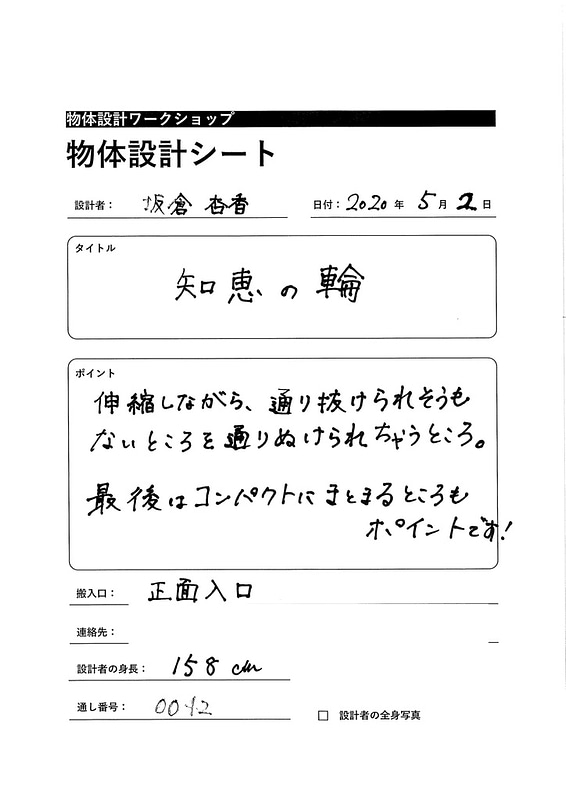 物体設計ワークショップ
物体設計シート
設計者： 坂倉 杏香 日付：2020 年 5 月 2 日
タイトル
知恵の輪
ポイント
伸縮しながら、通り抜けられそうも
ないところを通りぬけられちゃうところ。
最後はコンパクトにまとまるところも
ポイントです!
搬入口： 正面入口
連絡先：
設計者の身長： 158 cm
通し番号： 0042
□ 設計者の全身写真